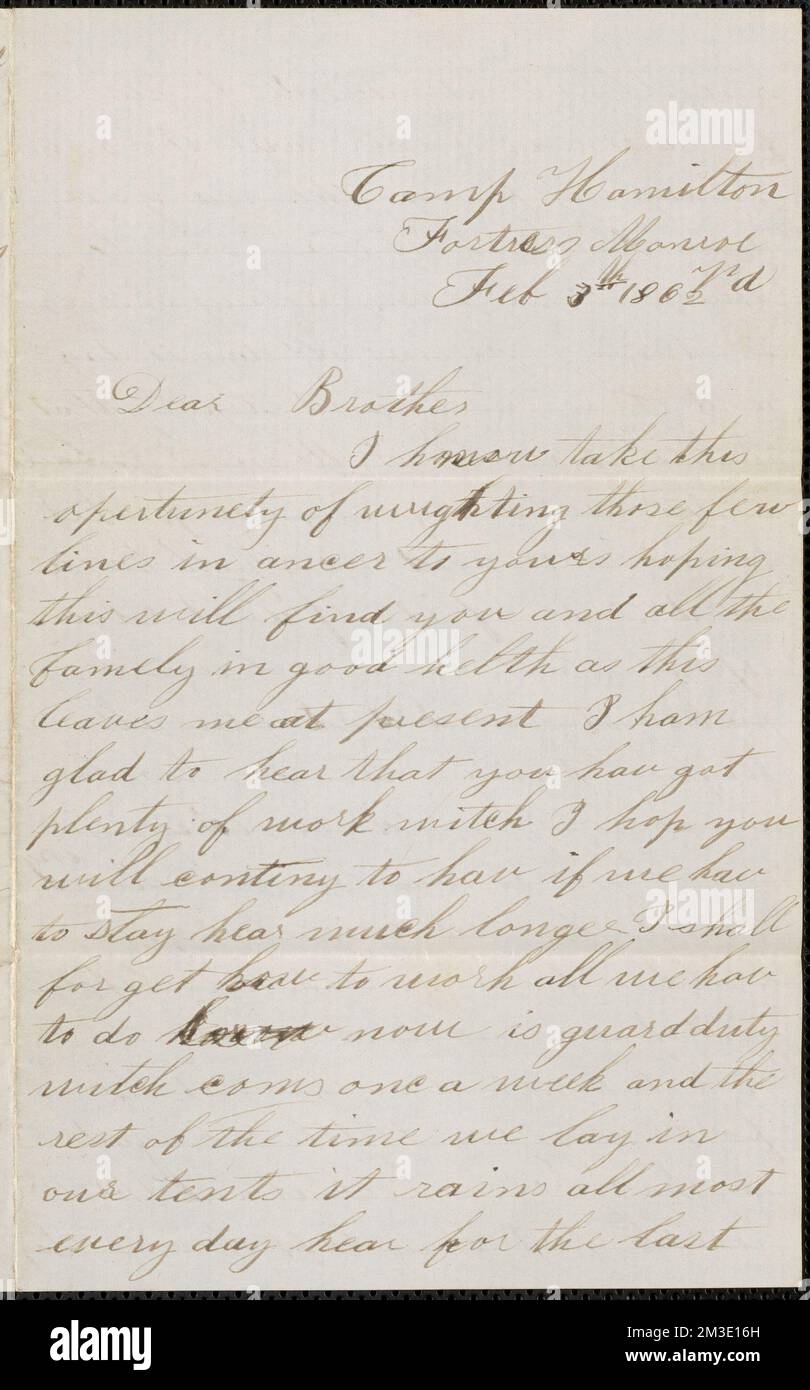 Camp Hamilton
Fortress Monroe
Feb 3th 1862
Dear Brother
I now take this
opertunety of wrighting those few
lines in ancer to yours hoping
this will find you and all the
famely in good helth as this
leaves me at present I ham
glad to hear that you hav got
plenty of work witch I hop you
will continy to hav if we hav
to stay hear much longer I shall
for get how to work all we hav
to do now is guard duty
witch coms once a week and the
rest of the time we lay in
our tents it rains all most
every day hear for the last
alamy
alamy
alamy
Image ID: 2M3E16H
www.alamy.com